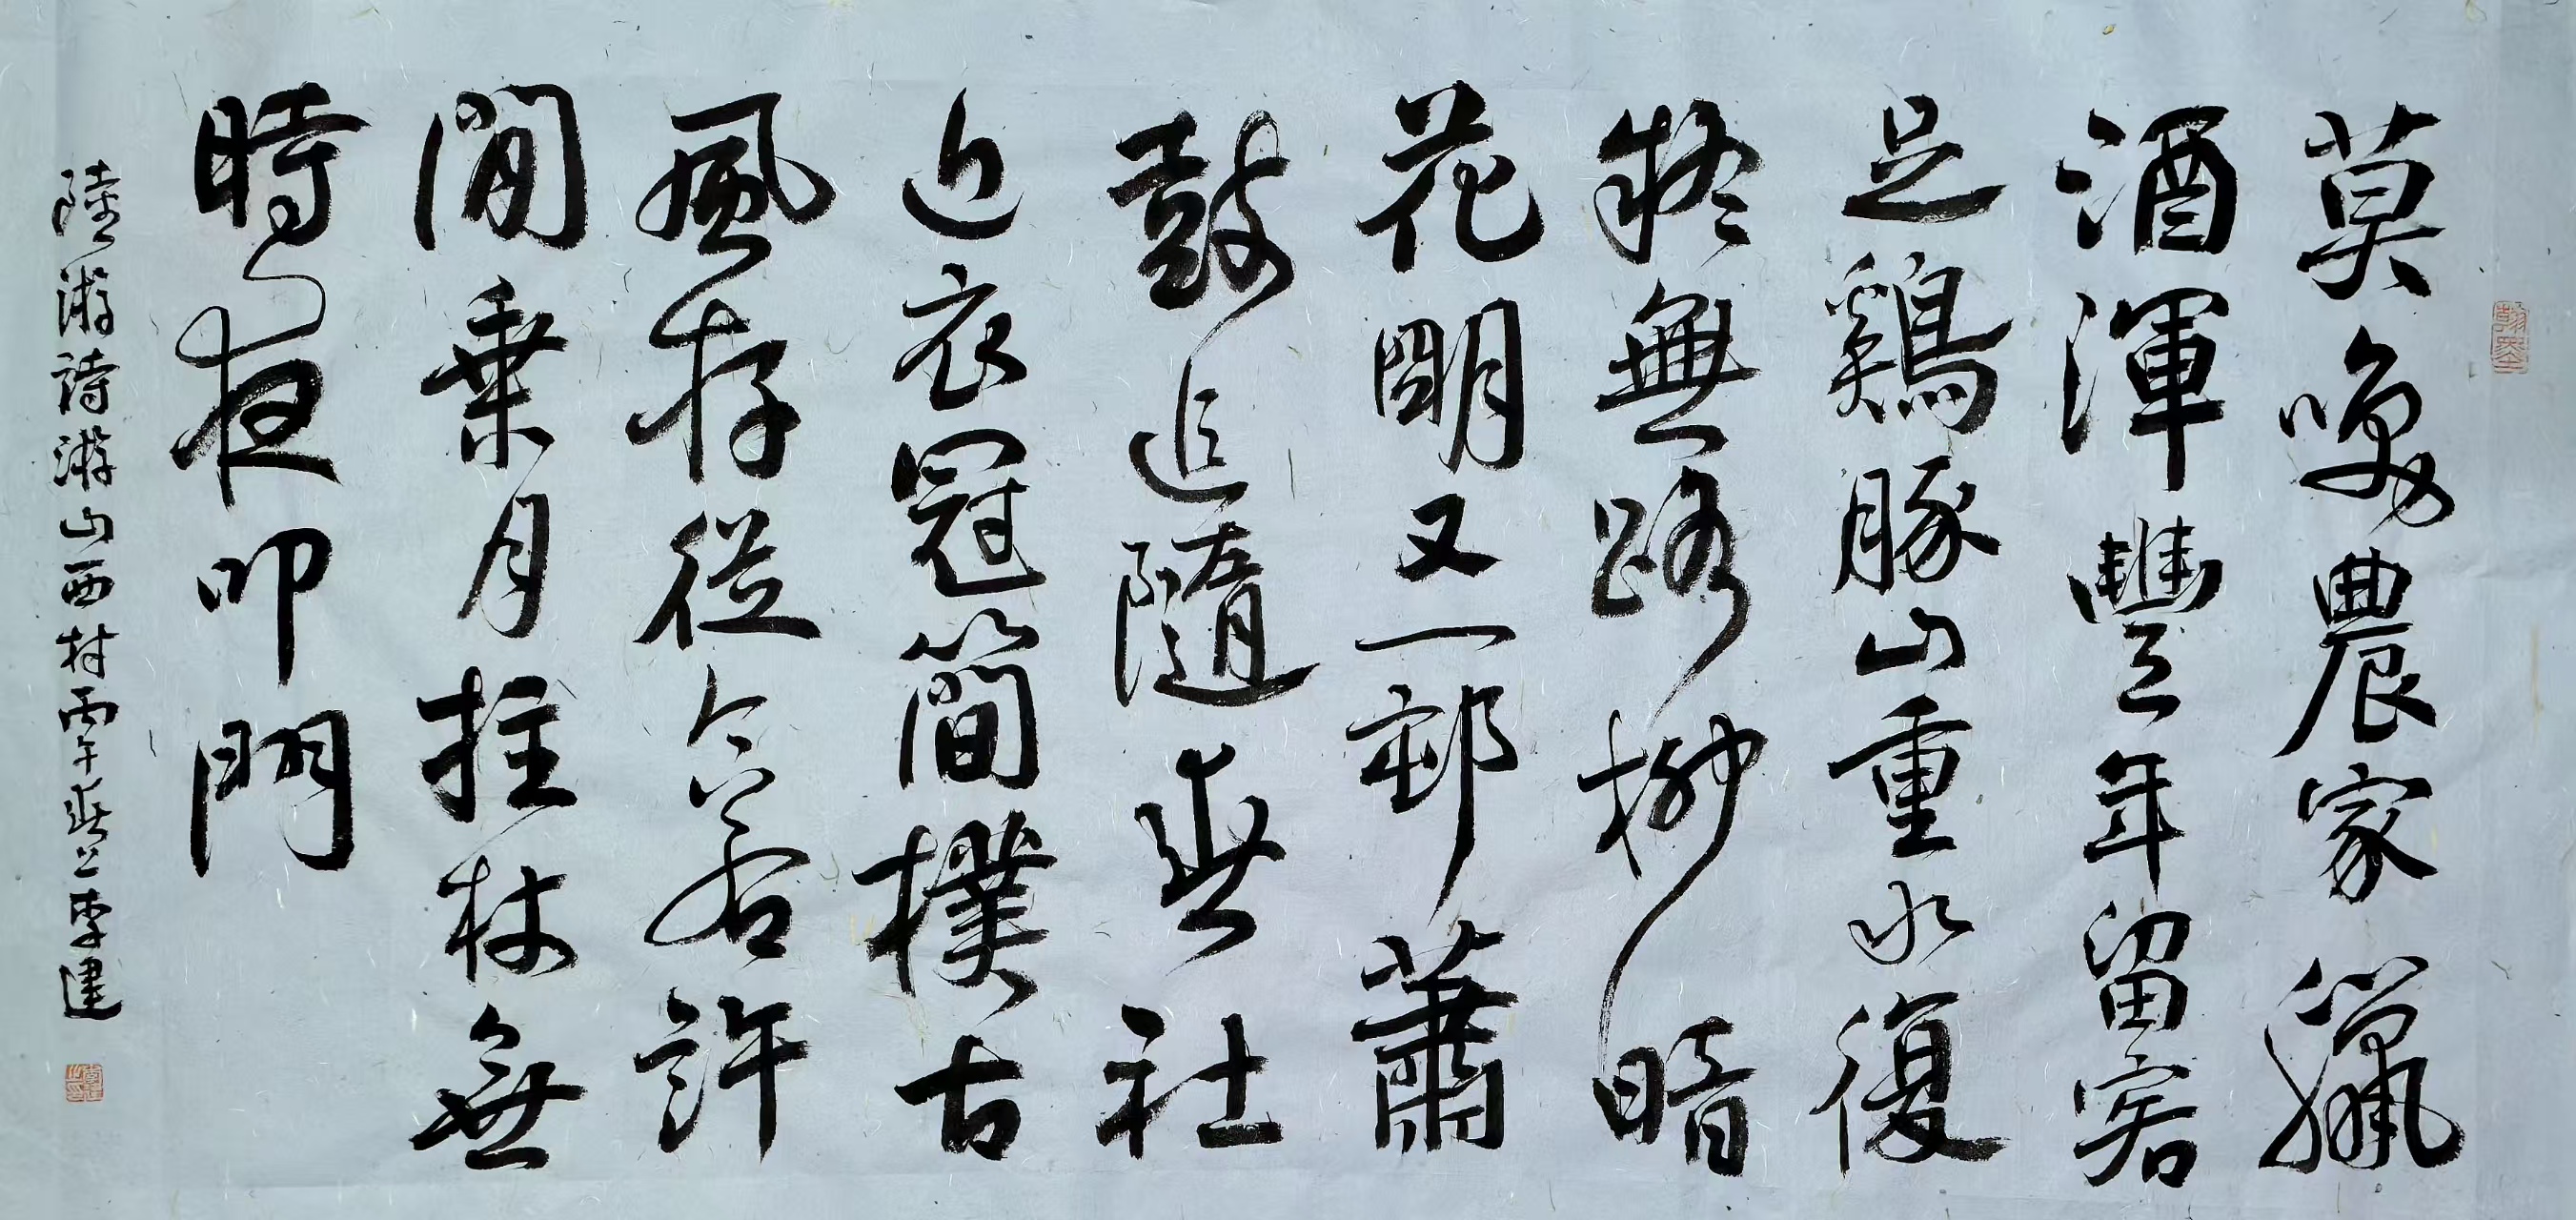 莫咲農家臘
酒渾豐年留客
足鷄豚山重水復
疑無路柳暗
花明又一邨蕭
鼓追隨春社
近衣冠簡樸古
風存從今若許
閒乘月拄杖無
時夜叩門
陸游詩游山西村丙午春李建
翰墨